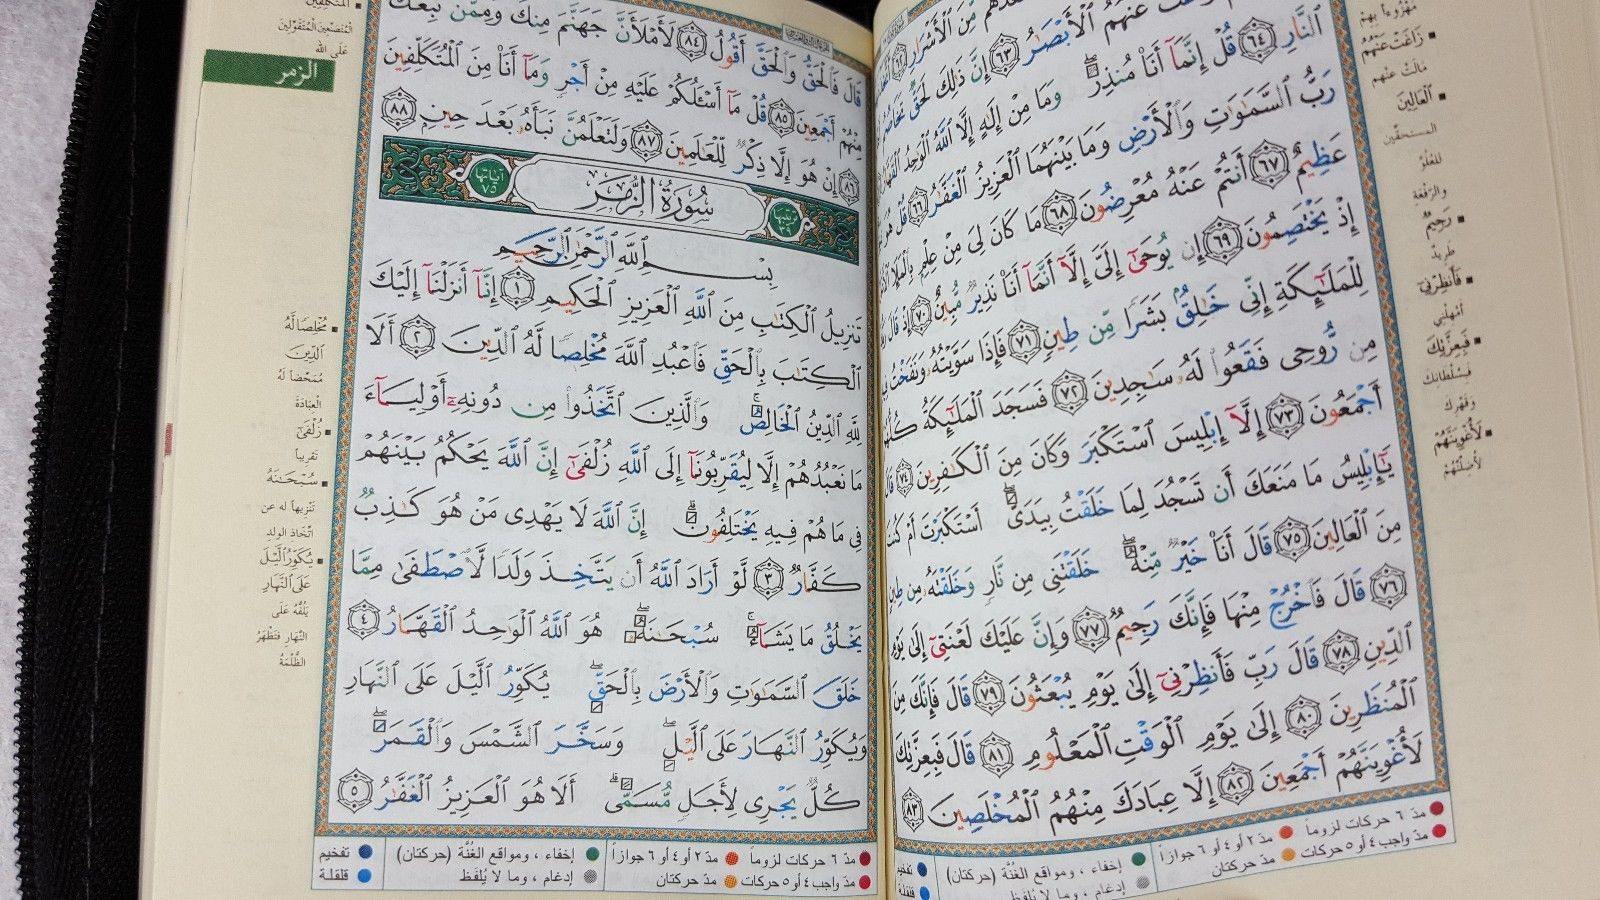 النَّارِ ٦٤ قُلْ إِنَّمَآ أَنَا۠ مُنذِرٌ ۖ وَمَا مِنْ إِلَٰهٍ إِلَّا ٱللَّهُ ٱلْوَٰحِدُ
رَبُّ ٱلسَّمَٰوَٰتِ وَٱلْأَرْضِ وَمَا بَيْنَهُمَا ٱلْعَزِيزُ ٱلْغَفَّٰرُ ٦٦ قُلْ هُوَ
عَظِيمٌ ٦٧ أَنتُمْ عَنْهُ مُعْرِضُونَ ٦٨ مَا كَانَ لِىَ مِنْ عِلْمٍۭ بِٱلْمَلَإِ
إِذْ يَخْتَصِمُونَ ٦٩ إِن يُوحَىٰٓ إِلَىَّ إِلَّآ أَنَّمَآ أَنَا۠ نَذِيرٌ مُّبِينٌ ٧٠ إِذْ قَالَ
لِلْمَلَٰٓئِكَةِ إِنِّى خَٰلِقٌۢ بَشَرًا مِّن طِينٍ ٧١ فَإِذَا سَوَّيْتُهُۥ وَنَفَخْتُ
مِن رُّوحِى فَقَعُوا۟ لَهُۥ سَٰجِدِينَ ٧٢ فَسَجَدَ ٱلْمَلَٰٓئِكَةُ
أَجْمَعُونَ ٧٣ إِلَّآ إِبْلِيسَ ٱسْتَكْبَرَ وَكَانَ مِنَ ٱلْكَٰفِرِينَ ٧٤
يَٰٓإِبْلِيسُ مَا مَنَعَكَ أَن تَسْجُدَ لِمَا خَلَقْتُ بِيَدَىَّ ۖ أَسْتَكْبَرْتَ أَمْ كُنتَ
مِنَ ٱلْعَالِينَ ٧٥ قَالَ أَنَا۠ خَيْرٌ مِّنْهُ ۖ خَلَقْتَنِى مِن نَّارٍ وَخَلَقْتَهُۥ مِن طِينٍ
٧٦ قَالَ فَٱخْرُجْ مِنْهَا فَإِنَّكَ رَجِيمٌ ٧٧ وَإِنَّ عَلَيْكَ لَعْنَتِىٓ إِلَىٰ يَوْمِ
ٱلدِّينِ ٧٨ قَالَ رَبِّ فَأَنظِرْنِىٓ إِلَىٰ يَوْمِ يُبْعَثُونَ ٧٩ قَالَ فَإِنَّكَ مِنَ
ٱلْمُنظَرِينَ ٨٠ إِلَىٰ يَوْمِ ٱلْوَقْتِ ٱلْمَعْلُومِ ٨١ قَالَ فَبِعِزَّتِكَ
لَأُغْوِيَنَّهُمْ أَجْمَعِينَ ٨٢ إِلَّا عِبَادَكَ مِنْهُمُ ٱلْمُخْلَصِينَ ٨٣
زَاغَتْ عَنْهُمُ
مَالَتْ عنهم
ٱلْعَالِينَ
المستحقّين
للعُلُوّ
والرّفعة
رَجِيمٌ
طريدٌ
فَأَنظِرْنِىٓ
أمْهِلني
فَبِعِزَّتِكَ
فبسُلطانِك
وقَهْرِك
لَأُغْوِيَنَّهُمْ
لأضِلَّنَّهُمْ
مدّ ٦ حركات لزوماً مدّ ٢ أو ٤ أو ٦ جوازاً إخفاء ، ومواقع الغُنَّة (حركتان) تفخيم
مدّ واجب ٤ أو ٥ حركات مدّ حركتان إدغام ، وما لا يُلفَظ قلقلة
قَالَ فَٱلْحَقُّ وَٱلْحَقَّ أَقُولُ ٨٤ لَأَمْلَأَنَّ جَهَنَّمَ مِنكَ وَمِمَّن تَبِعَكَ
مِنْهُمْ أَجْمَعِينَ ٨٥ قُلْ مَآ أَسْـَٔلُكُمْ عَلَيْهِ مِنْ أَجْرٍ وَمَآ أَنَا۠ مِنَ ٱلْمُتَكَلِّفِينَ
٨٦ إِنْ هُوَ إِلَّا ذِكْرٌ لِّلْعَٰلَمِينَ ٨٧ وَلَتَعْلَمُنَّ نَبَأَهُۥ بَعْدَ حِينٍۭ ٨٨
ترتيبها ٣٩ سُورَةُ الزُّمَرِ آياتها ٧٥
بِسْمِ ٱللَّهِ ٱلرَّحْمَٰنِ ٱلرَّحِيمِ
تَنزِيلُ ٱلْكِتَٰبِ مِنَ ٱللَّهِ ٱلْعَزِيزِ ٱلْحَكِيمِ ١ إِنَّآ أَنزَلْنَآ إِلَيْكَ
ٱلْكِتَٰبَ بِٱلْحَقِّ فَٱعْبُدِ ٱللَّهَ مُخْلِصًا لَّهُ ٱلدِّينَ ٢ أَلَا
لِلَّهِ ٱلدِّينُ ٱلْخَالِصُ ۚ وَٱلَّذِينَ ٱتَّخَذُوا۟ مِن دُونِهِۦٓ أَوْلِيَآءَ
مَا نَعْبُدُهُمْ إِلَّا لِيُقَرِّبُونَآ إِلَى ٱللَّهِ زُلْفَىٰٓ إِنَّ ٱللَّهَ يَحْكُمُ بَيْنَهُمْ
فِى مَا هُمْ فِيهِ يَخْتَلِفُونَ ۗ إِنَّ ٱللَّهَ لَا يَهْدِى مَنْ هُوَ كَٰذِبٌ
كَفَّارٌ ٣ لَّوْ أَرَادَ ٱللَّهُ أَن يَتَّخِذَ وَلَدًا لَّٱصْطَفَىٰ مِمَّا
يَخْلُقُ مَا يَشَآءُ ۚ سُبْحَٰنَهُۥ ۖ هُوَ ٱللَّهُ ٱلْوَٰحِدُ ٱلْقَهَّارُ ٤
خَلَقَ ٱلسَّمَٰوَٰتِ وَٱلْأَرْضَ بِٱلْحَقِّ ۖ يُكَوِّرُ ٱلَّيْلَ عَلَى ٱلنَّهَارِ
وَيُكَوِّرُ ٱلنَّهَارَ عَلَى ٱلَّيْلِ ۖ وَسَخَّرَ ٱلشَّمْسَ وَٱلْقَمَرَ ۖ
كُلٌّ يَجْرِى لِأَجَلٍ مُّسَمًّى ۗ أَلَا هُوَ ٱلْعَزِيزُ ٱلْغَفَّٰرُ ٥
المُتَكَلِّفِينَ
المُتصنّعين المُتقوّلين
على الله
الزمر
مُخْلِصًا لَّهُ
ٱلدِّينَ
مُمَحّضاً لَهُ
العِبَادَة
زُلْفَىٰ
تقريباً
سُبْحَٰنَهُ
تَنْزيهاً له عن
اتّخاذ الولد
يُكَوِّرُ ٱلَّيْلَ
عَلَى ٱلنَّهَارِ
يلُفُّهُ على
النّهار فتظهَرُ
الظُّلْمَةُ
مدّ ٦ حركات لزوماً مدّ ٢ أو ٤ أو ٦ جوازاً إخفاء ، ومواقع الغُنَّة (حركتان) تفخيم
مدّ واجب ٤ أو ٥ حركات مدّ حركتان إدغام ، وما لا يُلفَظ قلقلة